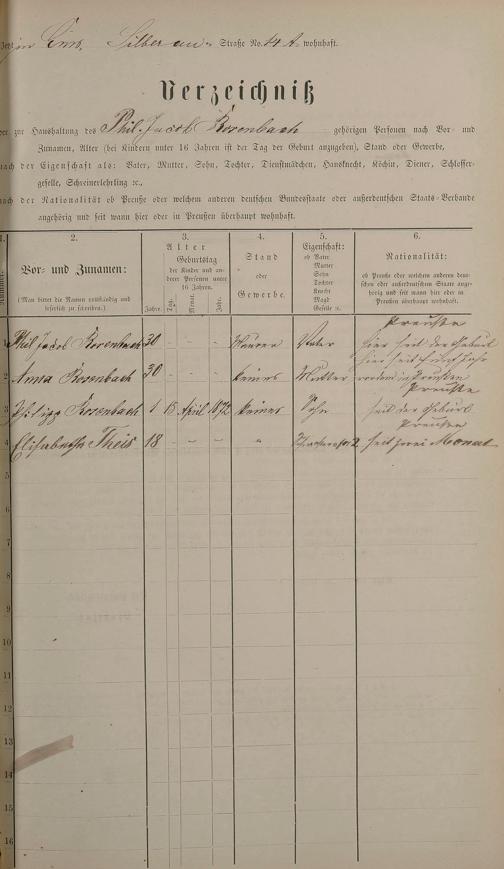 in Ems, Silberau Straße No. 14 A wohnhaft.
Verzeichniß
der zur Haushaltung des Phil. Jacob Rosenbach gehörigen Personen nach Vor- und
Zunamen, Alter (bei Kindern unter 16 Jahren ist der Tag der Geburt anzugeben), Stand oder Gewerbe,
nach der Eigenschaft als: Vater, Mutter, Sohn, Tochter, Dienstmädchen, Hausknecht, Köchin, Diener, Schlosser-
geselle, Schreinerlehrling ꝛc.,
nach der Nationalität ob Preuße oder welchem anderen deutschen Bundesstaate oder außerdeutschen Staats-Verbande
angehörig und seit wann hier oder in Preußen überhaupt wohnhaft.
1.
Nummer.
2.
Vor- und Zunamen:
(Man bittet die Namen vollständig und
leserlich zu schreiben.)
3.
Alter
Geburtstag
der Kinder und an-
derer Personen unter
16 Jahren.
Jahre. Tag. Monat. Jahr.
4.
Stand
oder
Gewerbe.
5.
Eigenschaft:
ob Vater
Mutter
Sohn
Tochter
Knecht
Magd
Geselle ꝛc.
6.
Nationalität:
ob Preuße oder welchem anderen deut-
schen oder außerdeutschen Staate ange-
hörig und seit wann hier oder in
Preußen überhaupt wohnhaft.
Preuße
1 Phil. Jacob Rosenbach 30 – – – Maurer Vater hier seit der Geburt
hier seit Jahr
2 Anna Rosenbach 30 – – – keines Mutter in Preußen
Preuße
3 Philipp Rosenbach 1 15 April 1872 keines Sohn seit der Geburt
Preußen
4 Elisabetha Theis 18 – – – " seit zwei Monat
5
6
7
8
9
10
11
12
13
14
15
16